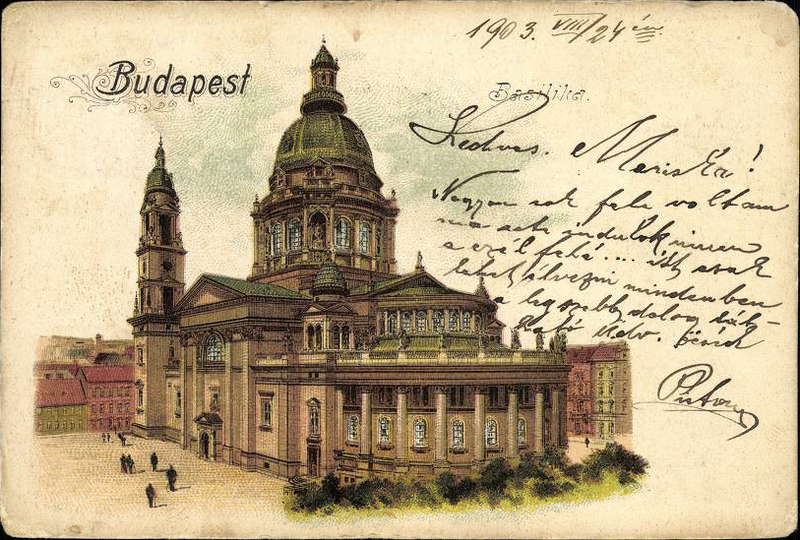 1903. VIII/24 én.
Budapest
Basilika.
Kedves Mariska!
Nagyon sok fele voltam
ma este indulok innen
a szél felé.... itt csak
lehet élvezni mindenben
a legszebb dolog lát-
ható Üdv.